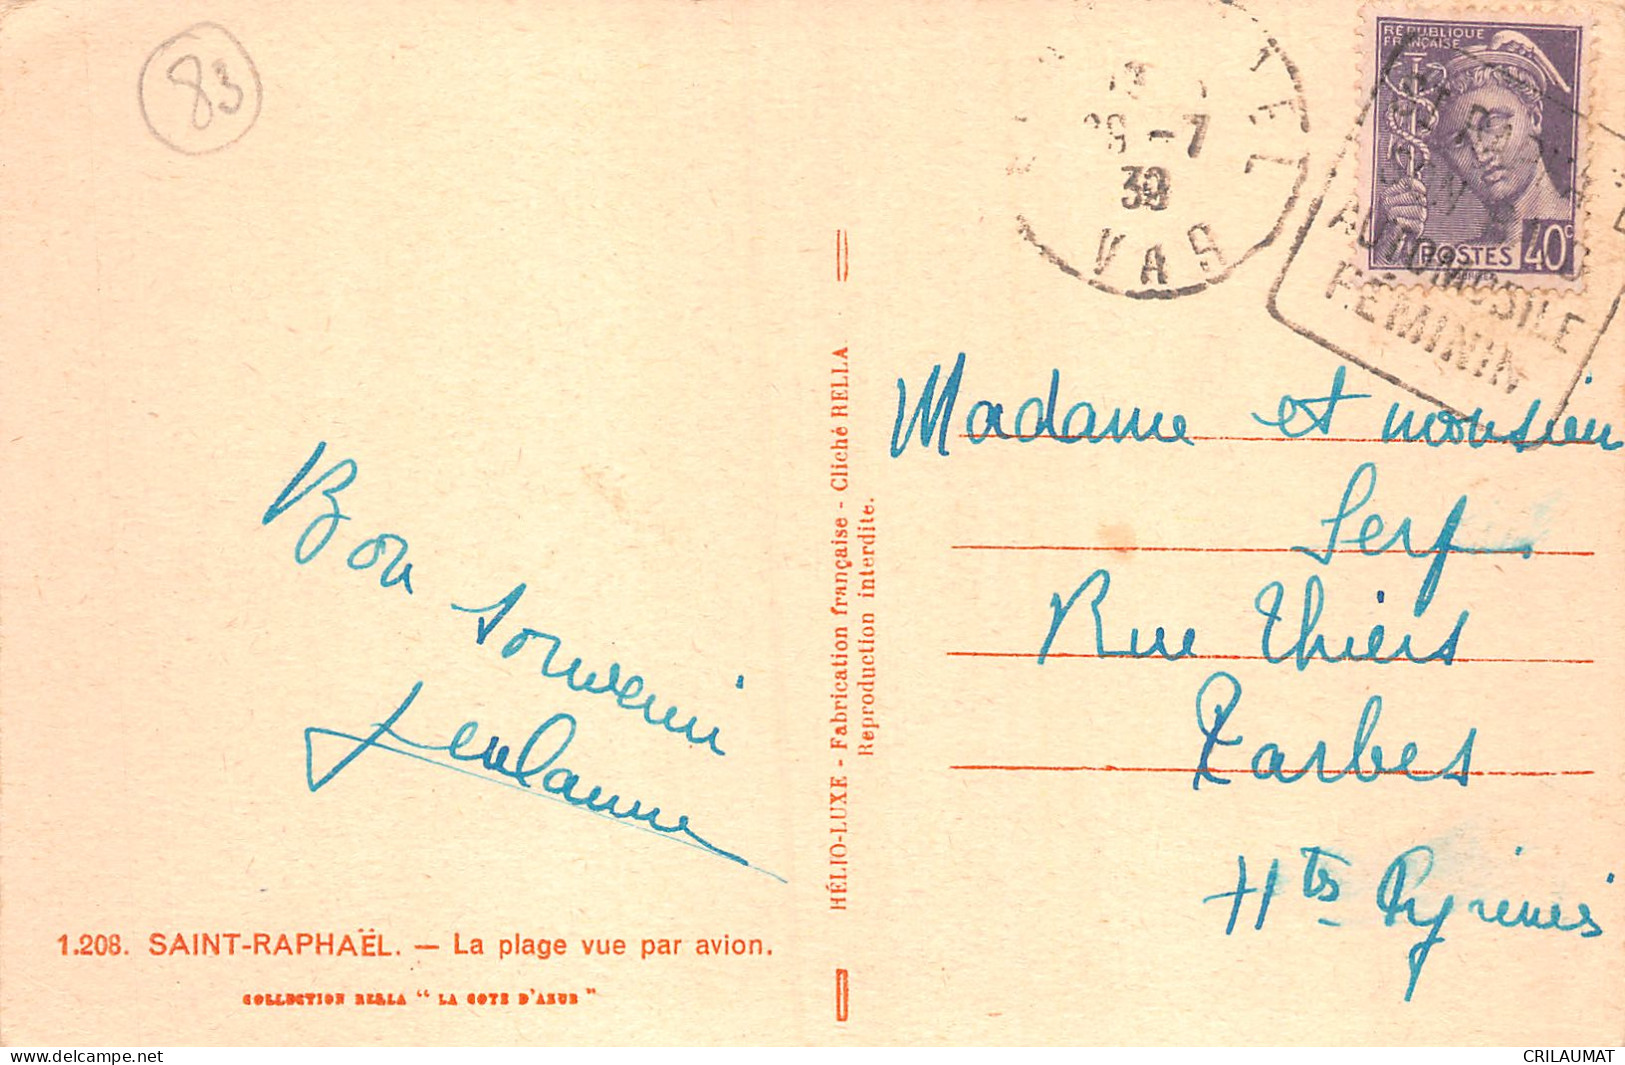 83
RÉPUBLIQUE
FRANÇAISE
POSTES 40c
-7
39
VAR
SON
AUTOMOBILE
FÉMININ
Bon souvenir
Madame et monsieur
Serf
Rue Thiers
Tarbes
Htes Pyrénées
HÉLIO-LUXE - Fabrication française - Cliché RELLA
Reproduction interdite.
1.208. SAINT-RAPHAËL. — La plage vue par avion.
COLLECTION RELLA “ LA COTE D'AZUR ”
CRILAUMAT